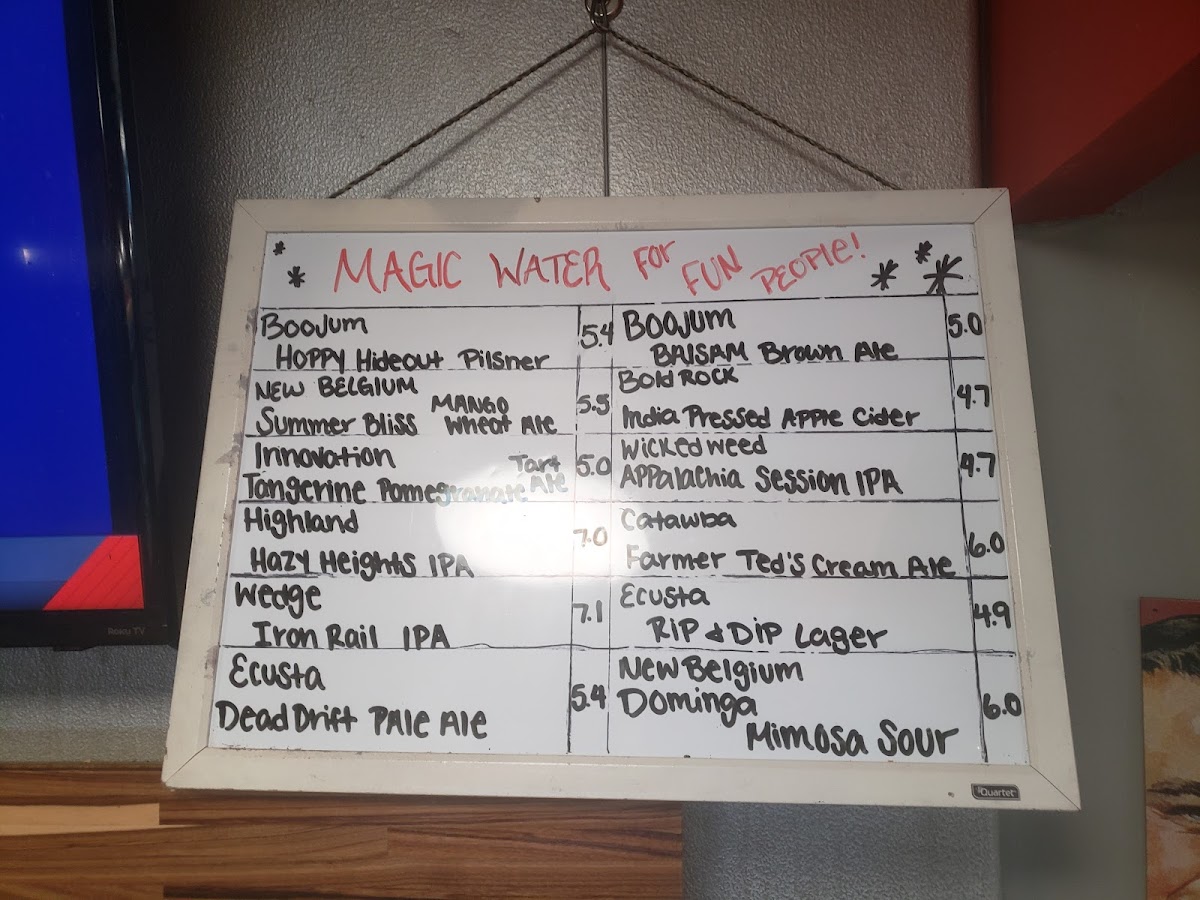 MAGIC WATER FOR FUN PEOPLE!
Boojum
Hoppy Hideout Pilsner
5.4
New Belgium
Summer Bliss Mango Wheat Ale
5.5
Innovation
Tangerine Pomegranate Tart Ale
5.0
Highland
Hazy Heights IPA
7.0
Wedge
Iron Rail IPA
7.1
Ecusta
Dead Drift Pale Ale
5.4
Boojum
Balsam Brown Ale
5.0
Bold Rock
India Pressed Apple Cider
4.7
Wicked Weed
Appalachia Session IPA
4.7
Catawba
Farmer Ted's Cream Ale
6.0
Ecusta
Rip & Dip Lager
4.9
New Belgium
Dominga
Mimosa Sour
6.0
Quartet
Roku TV